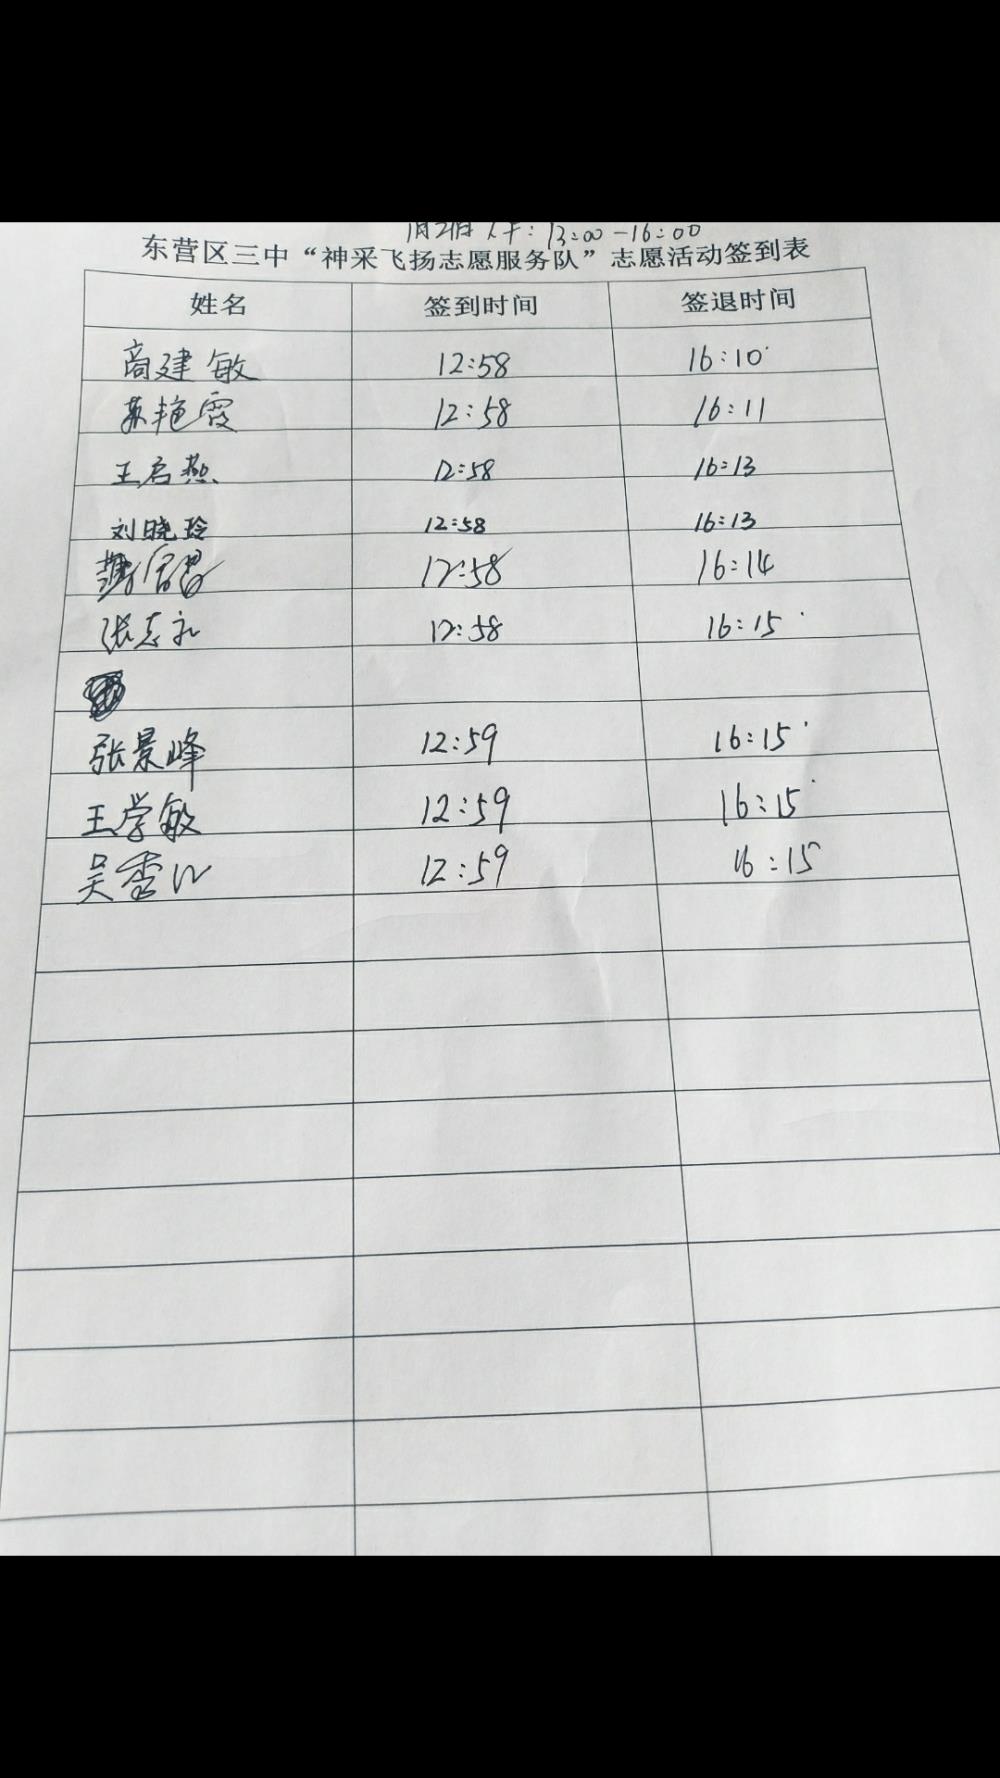 13:00-16:00
东营区三中“神采飞扬志愿服务队”志愿活动签到表
姓名 签到时间 签退时间
商建敏 12:58 16:10
苏艳霞 12:58 16:11
王启燕 12:58 16:13
刘晓玲 12:58 16:13
12:58 16:14
张志礼 12:58 16:15
张景峰 12:59 16:15
王学敏 12:59 16:15
吴 12:59 16:15